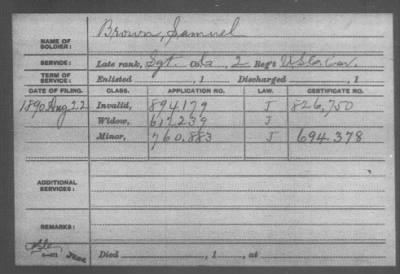 Brown, Samuel
NAME OF SOLDIER:
SERVICE: Late rank, Sgt. Co. 2 Reg't U.S.C. Cav.
TERM OF SERVICE: Enlisted , 1 Discharged , 1
DATE OF FILING. CLASS. APPLICATION NO. LAW. CERTIFICATE NO.
1890 Aug 22 Invalid, 894179 J 826,750
Widow, 617239 J
Minor, 760.883 J 694.378
ADDITIONAL SERVICES:
REMARKS:
Died , 1 , at